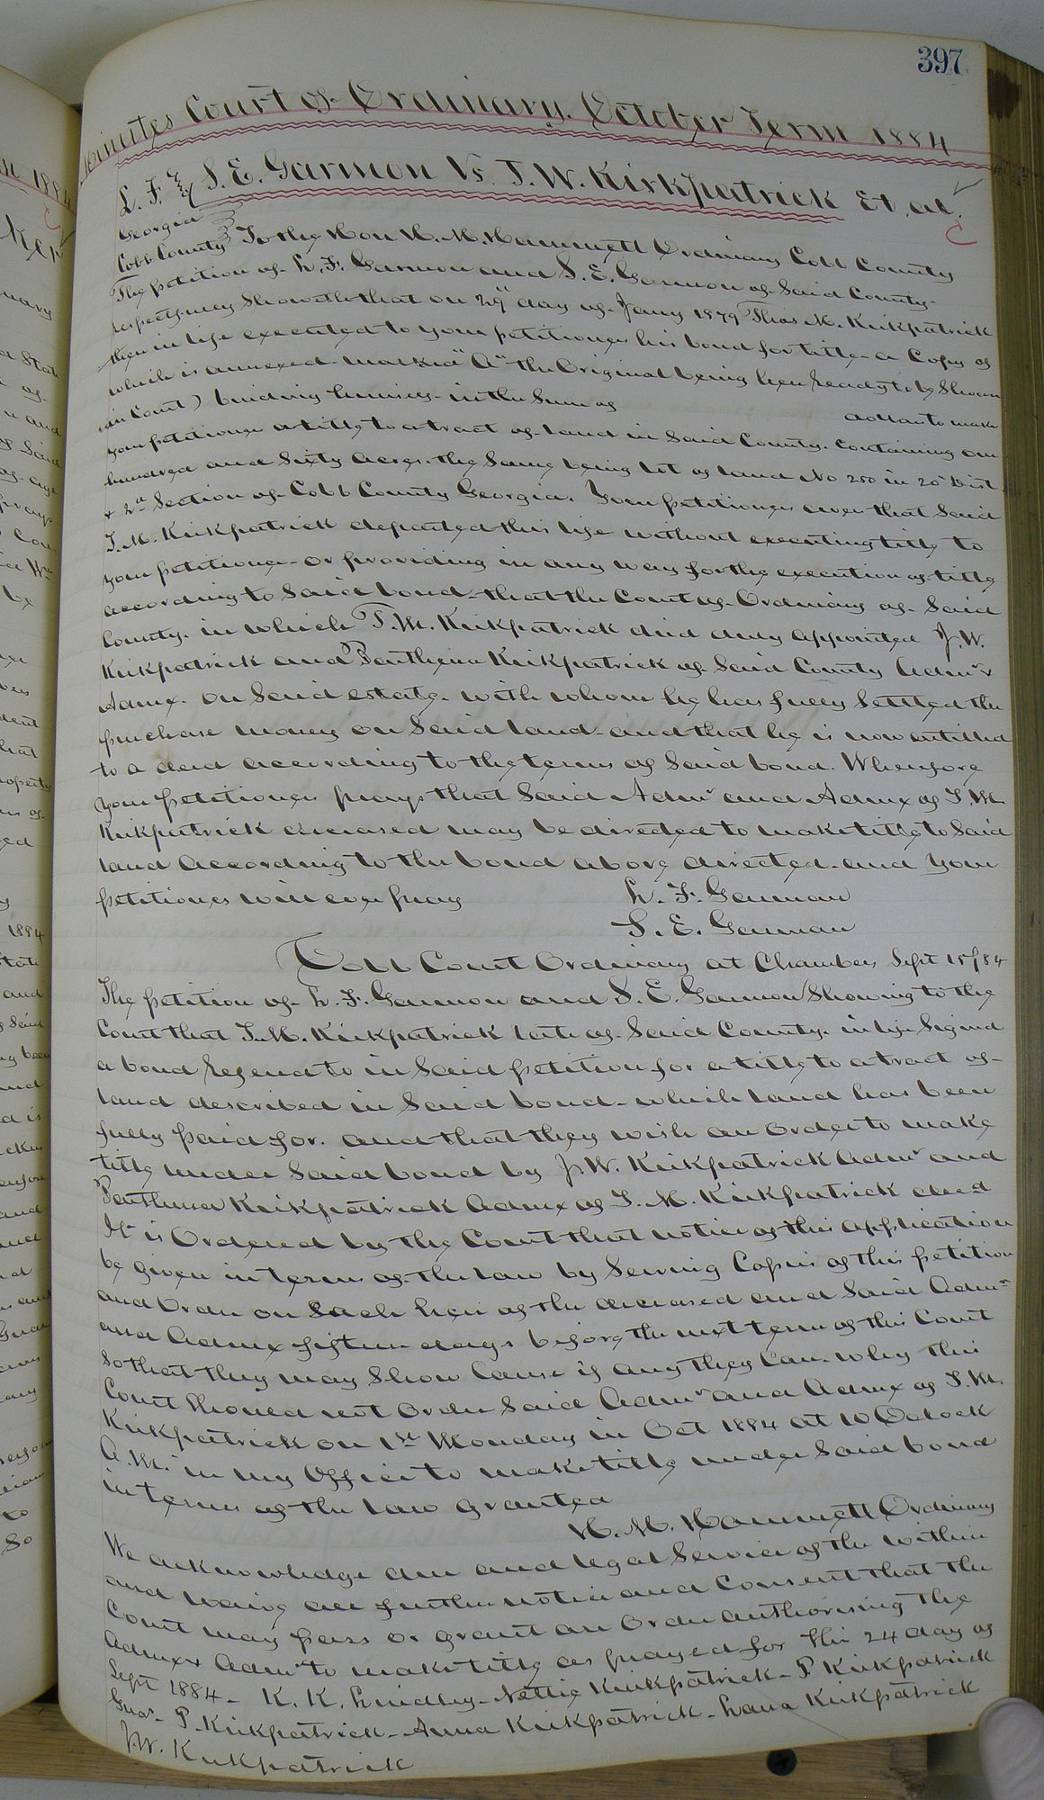 397
Minutes Court of Ordinary. October Term 1884
L. F. & S. E. Garmon Vs. J. W. Kirkpatrick Et. al.
Georgia
Cobb County To the Hon H. M. Hammett Ordinary Cobb County
The petition of L. F. Garmon and S. E. Garmon of Said County
respectfully Showeth that on 29" day of Jany 1879 Thos M. Kirkpatrick
then in life executed to your petitioners his bond for title a Copy of
which is annexed marked "A" the Original being here ready to be Shown
in Court) binding himself in the Sum of dollars to make
your petitioners a title to a tract of land in Said County. Containing one
hundred and Sixty acres. the Same being lot of land No 250 in 20 Dist
& 2d Section of Cobb County Georgia. Your petitioners aver that Said
T. M. Kirkpatrick departed this life without executing title to
your petitioners or providing in any way for the execution of title
according to Said bond that the Court of Ordinary of Said
County. in which T. M. Kirkpatrick died duly appointed J. W.
Kirkpatrick and Parthena Kirkpatrick of Said County Admr &
Admx. on Said estate. with whom he has fully Settled the
purchase money on Said land and that he is now entitled
to a deed according to the terms of Said bond. Wherefore
your petitioners prays that Said Admr and Admx of T. M.
Kirkpatrick deceased may be directed to make title to Said
land according to the bond above directed. and your
petitioners will ever pray L. F. Garmon
S. E. Garmon
Cobb Court Ordinary at Chambers Sept 15/84
The petition of L. F. Garmon and S. E. Garmon Showing to the
Court that T. M. Kirkpatrick late of Said County. in life Signed
a bond refered to in Said petition for a title to a tract of
land described in Said bond which land has been
fully paid for. and that they wish an order to make
title under Said bond by J. W. Kirkpatrick Admr and
Parthena Kirkpatrick Admx of T. M. Kirkpatrick decd
It is Ordered by the Court that notice of this application
be given in terms of the law by Serving Copies of this petition
and Order on Each heir of the deceased and Said Admr
and Admx fifteen days before the next term of this Court
So that they may Show Cause if any they Can. why this
Court Should not Order Said Admr and Admx of T. M.
Kirkpatrick on 1st Monday in Oct 1884 at 10 Oclock
A. M. in my Office to make title under Said bond
in terms of the law granted
H. M. Hammett Ordinary
We acknowledge due and legal Service of the within
and waive all further notice and Consent that the
Court may pass or grant an Order authorising the
Admx & Admr to make title as prayed for this 24 day of
Sept 1884 - K. K. Lindley - Nettie Kirkpatrick - P Kirkpatrick
P. Kirkpatrick - Anna Kirkpatrick - Kirkpatrick
J. W. Kirkpatrick